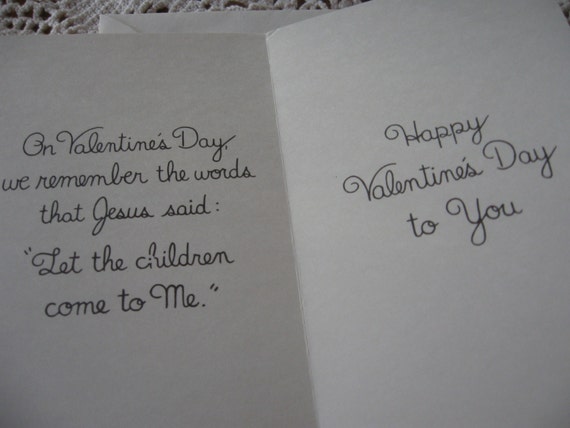 On Valentine's Day,
we remember the words
that Jesus said:
"Let the children
come to Me."
Happy
Valentine's Day
to You